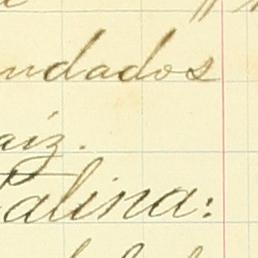 ndados
aiz.
alina: